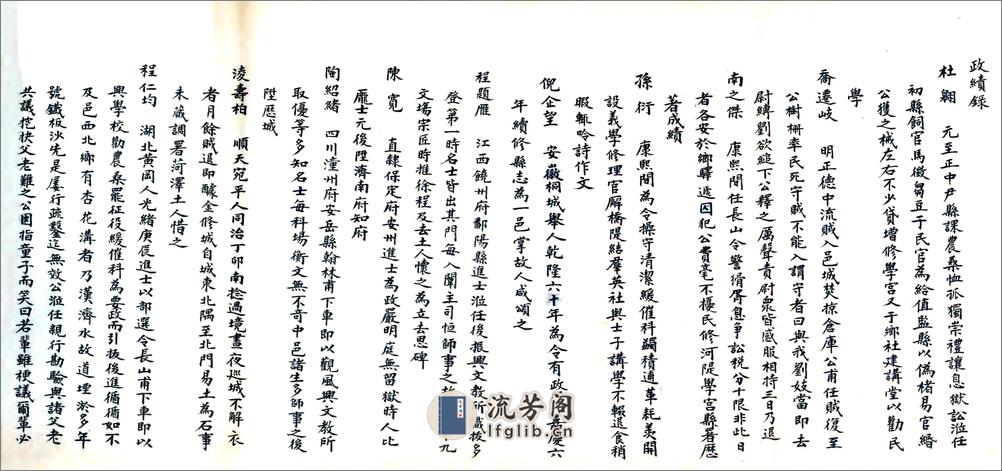 政績錄
杜翱　元至正中尹縣課農桑恤孤獨崇禮讓息獄訟蒞任
初縣飼官馬徵芻豆于民官為給值監縣以偽楮易官緡
公獲之械左右不少貸增修學宮又于鄉社建講堂以勸民
學
喬遷岐　明正德中流賊入邑城焚掠倉庫公甫任賊復至
公樹柵率民死守賊不能入謂守者曰與我劉妓當即去
尉縛劉欲縋下公釋之厲聲責尉眾皆感服相持三日乃退
南之傑　康熙間任長山令警惰胥息爭訟稅分十限非此日
者各安於鄉驛遞因犯公費毫不擾民修河隄學宮縣署歷
著成績
孫衍　康熙間為令操守清潔緩催科蠲積逋革耗羨開
設義學修理官廨橋隄結羣英社與士子講學不輟退食稍
暇輒吟詩作文
倪企望　安徽桐城舉人乾隆六十年為令有政聲嘉慶六
年續修縣志為一邑掌故人咸頌之
程題雁　江西饒州府鄱陽縣進士蒞任後振興文教所識拔多
登第一時名士皆出其門每入闈主司恒師事之故元
文場宗匠時推徐程及去士人懷之為立去思碑
陳寬　直隸保定府安州進士為政嚴明庭無留獄時人比
龐士元後陞濟南府知府
陶紹緒　四川潼州府安岳縣翰林甫下車即以觀風興文教所
取優等多知名士每科場衡文無不奇中邑諸生多師事之後
陞歷城
淩壽柏　順天宛平人同治丁卯南捻過境晝夜巡城不解衣
者月餘賊退即醵金修城自城東北隅至北門易土為石事
未蕆調署菏澤土人惜之
程仁均　湖北黃岡人光緒庚辰進士以部選令長山甫下車即以
興學校勸農桑罷征役緩催科為要政而引拔後進循循如不
及邑西北鄉有杏花溝者乃漢濟水故道堙淤多年
號鐵板沙先是屢行疏鑿迄無效公蒞任親行勘驗與諸父老
共議挖抉父老難之公因指童子而笑曰若輩雖梗議爾輩必
流芳閣
lfglib.cn